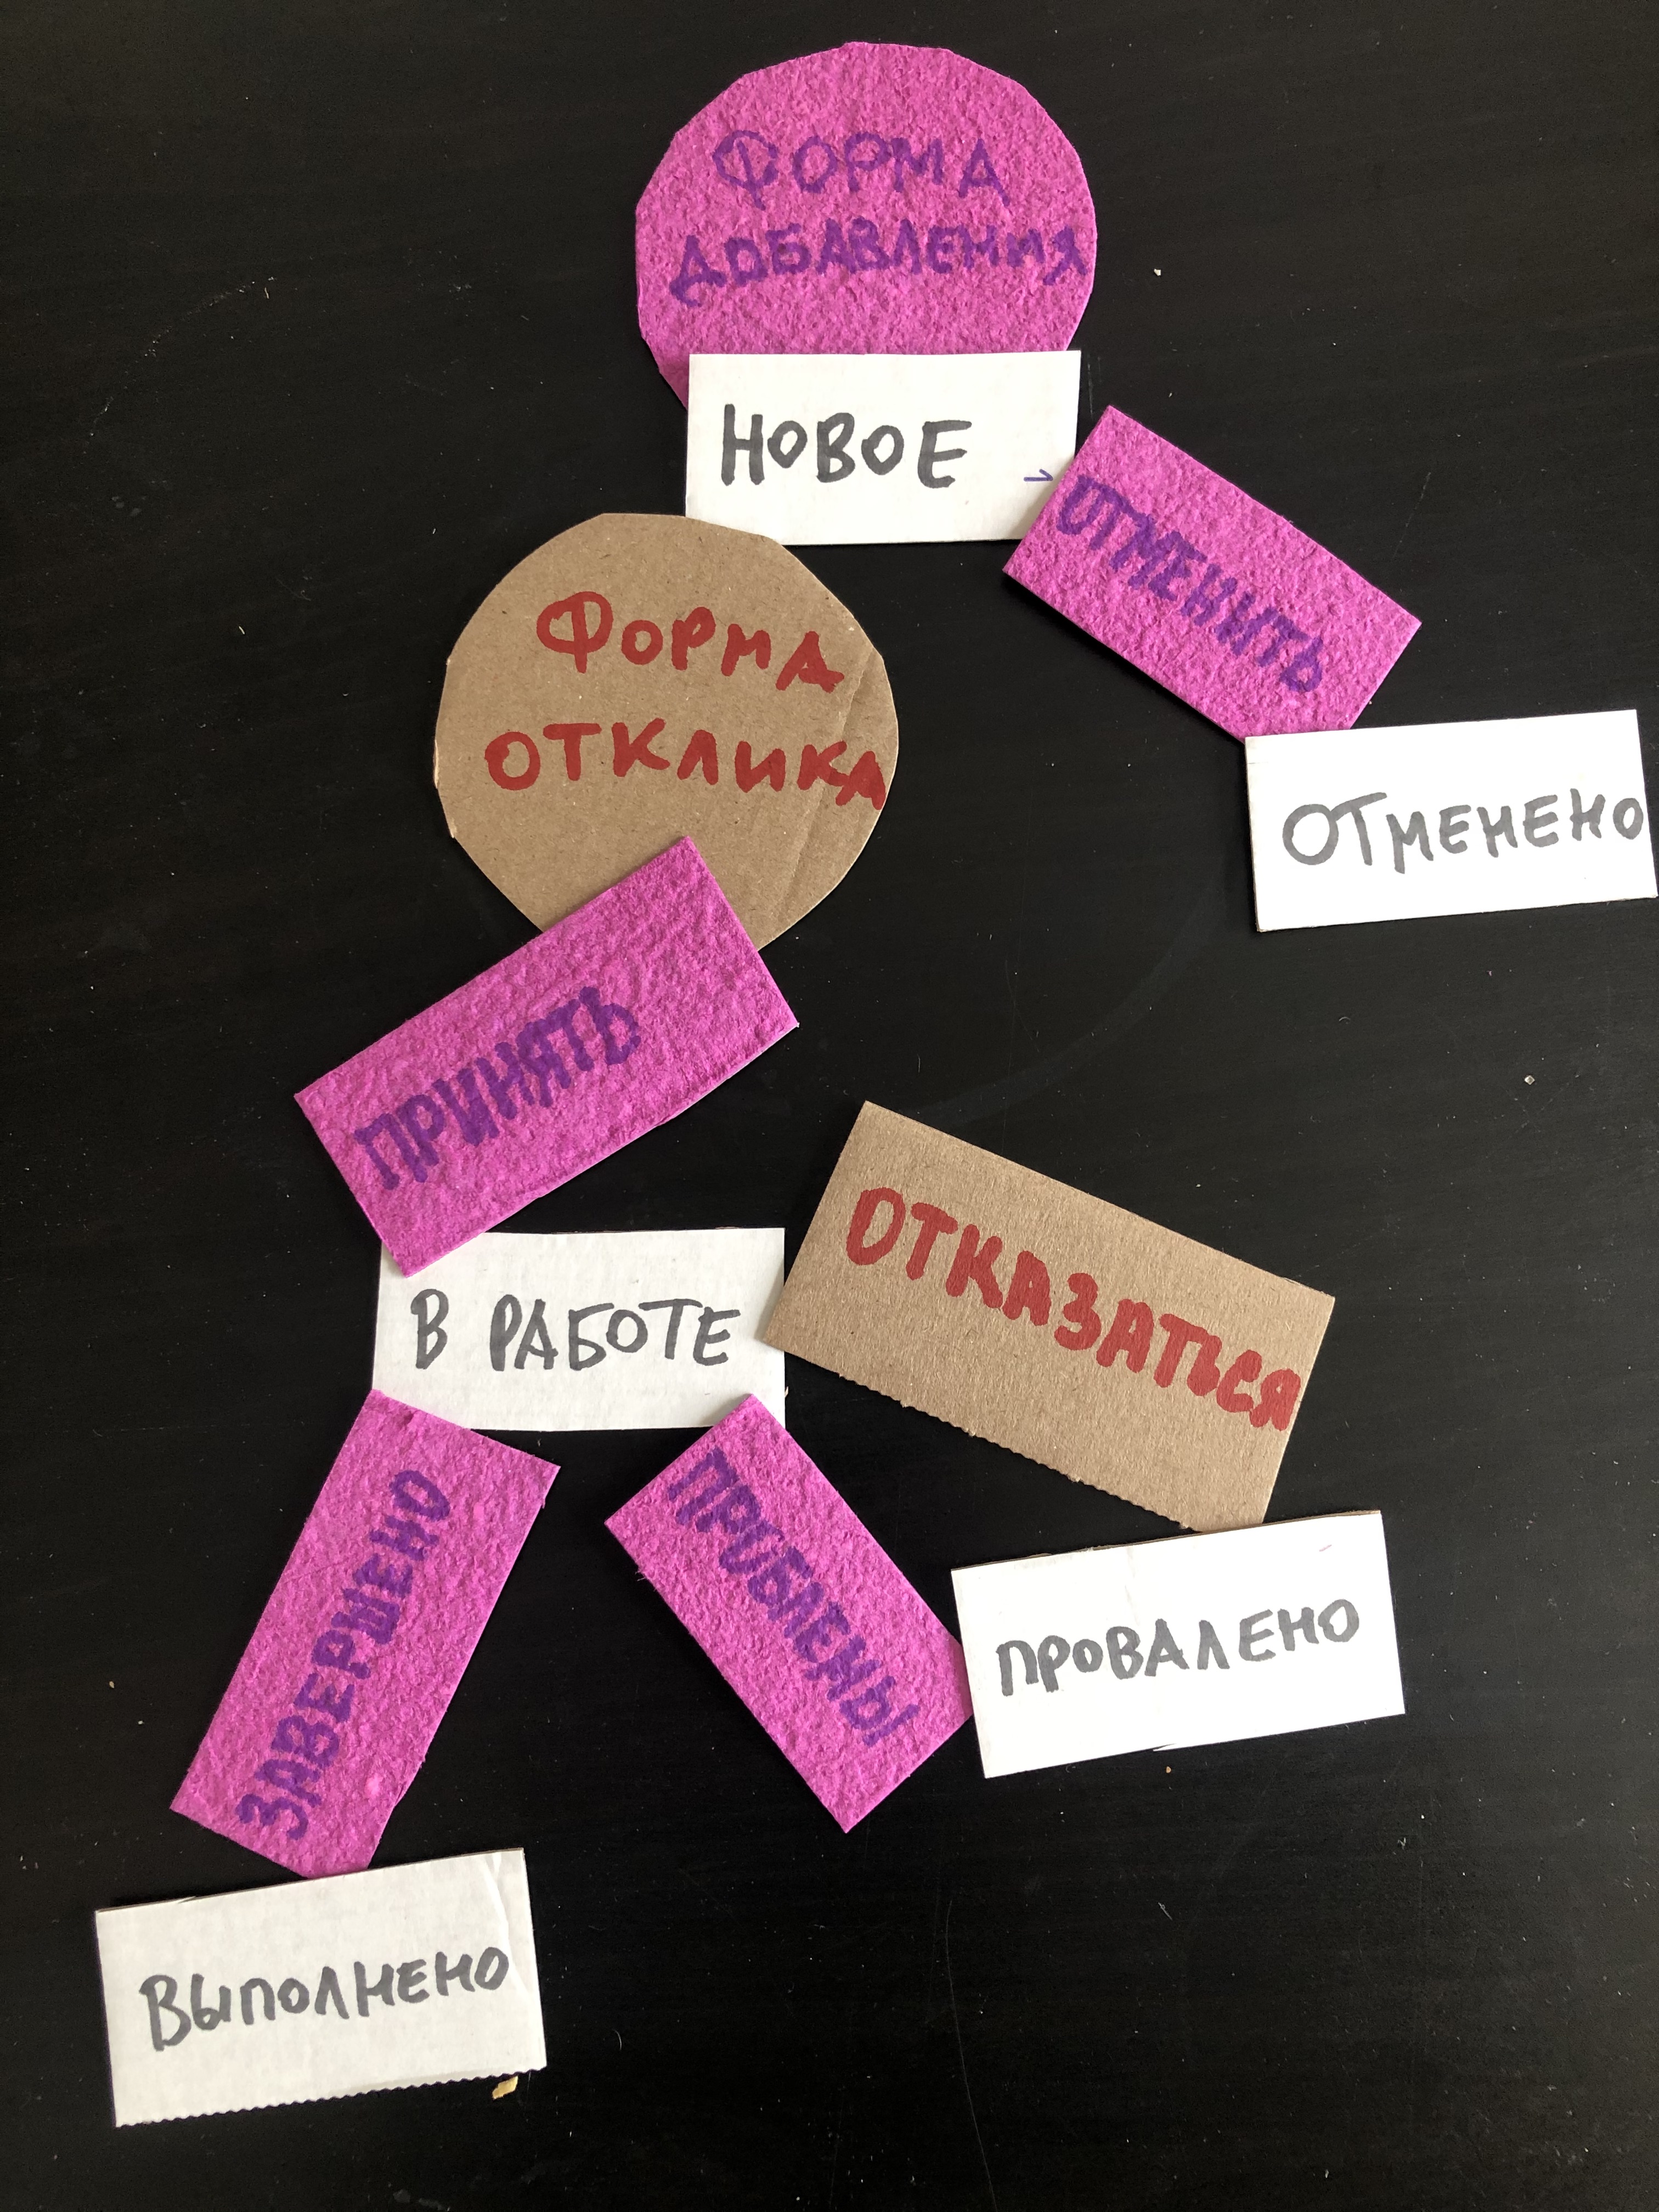 ФОРМА
ДОБАВЛЕНИЯ
НОВОЕ
ОТМЕНИТЬ
ОТМЕНЕНО
ФОРМА
ОТКЛИКА
ПРИНЯТЬ
В РАБОТЕ
ОТКАЗАТЬСЯ
ЗАВЕРШЕНО
ПРОБЛЕМЫ
ПРОВАЛЕНО
ВЫПОЛНЕНО